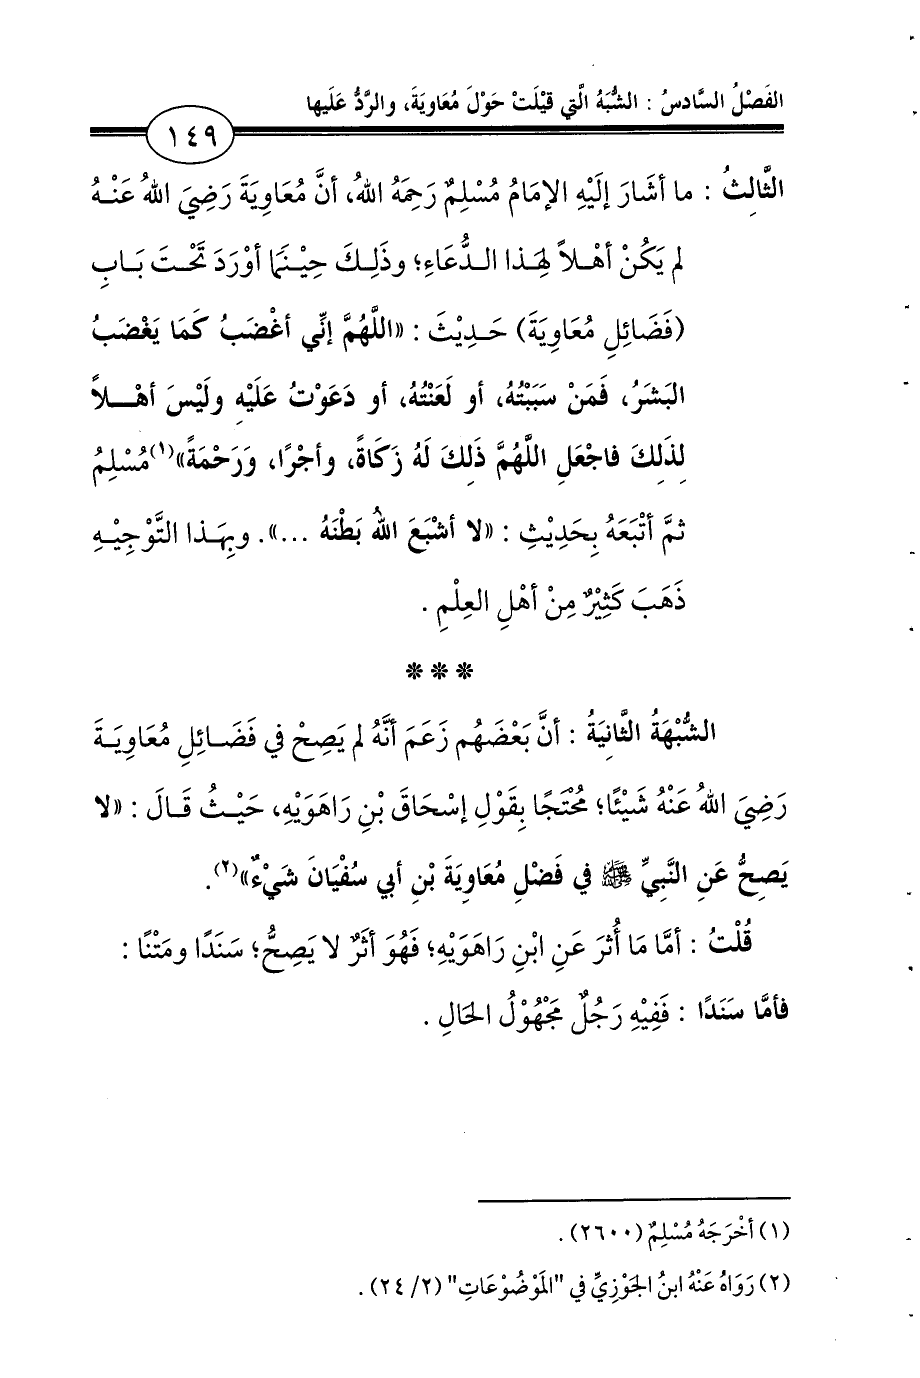 الفَصْلُ السَّادسُ : الشُّبَهُ الَّتي قِيْلَتْ حَوْلَ مُعَاوِيَةَ، والرَّدُّ عَلَيها
١٤٩
الثَّالِثُ : ما أشَارَ إلَيْهِ الإمَامُ مُسْلِمٌ رَحِمَهُ اللهُ، أنَّ مُعَاوِيَةَ رَضِيَ اللهُ عَنْهُ
لم يَكُنْ أهْلاً لهِذا الدُّعَاءِ؛ وذَلِكَ حِيْنَما أوْرَدَ تَحْتَ بَابِ
(فَضَائِلِ مُعَاوِيَةَ) حَدِيْثَ : «اللَّهُمَّ إنِّي أغْضَبُ كَمَا يَغْضَبُ
البَشَرُ، فَمَنْ سَبَبْتُهُ، أو لَعَنْتُهُ، أو دَعَوْتُ عَلَيْهِ ولَيْسَ أهْلاً
لِذَلِكَ فاجْعَلِ اللَّهُمَّ ذَلِكَ لَهُ زَكَاةً، وأجْرًا، وَرَحْمَةً»(١) مُسْلِمُ
ثمَّ أتْبَعَهُ بِحَدِيْثِ : «لا أشْبَعَ اللهُ بَطْنَهُ ...». وبِهَذا التَّوْجِيْهِ
ذَهَبَ كَثِيْرٌ مِنْ أهْلِ العِلْمِ .
* * *
الشُّبْهَةُ الثَّانِيَةُ : أنَّ بَعْضَهُم زَعَمَ أنَّهُ لم يَصِحْ في فَضَائِلِ مُعَاوِيَةَ
رَضِيَ اللهُ عَنْهُ شَيْئًا؛ مُحْتَجًا بِقَوْلِ إسْحَاقَ بْنِ رَاهَوَيْهِ، حَيْثُ قَالَ : «لا
يَصِحُّ عَنِ النَّبِيِّ ﷺ في فَضْلِ مُعَاوِيَةَ بْنِ أبي سُفْيَانَ شَيْءٌ»(٢).
قُلْتُ : أمَّا مَا أُثرَ عَنِ ابْنِ رَاهَوَيْهِ؛ فَهُوَ أثَرٌ لا يَصِحُّ؛ سَنَدًا ومَتْنًا :
فأمَّا سَنَدًا : فَفِيْهِ رَجُلٌ مَجْهُوْلُ الحَالِ .
(١) أخْرَجَهُ مُسْلِمٌ (٢٦٠٠) .
(٢) رَوَاهُ عَنْهُ ابنُ الجَوْزِيِّ في "المَوْضُوْعَاتِ" (٢/ ٢٤) .